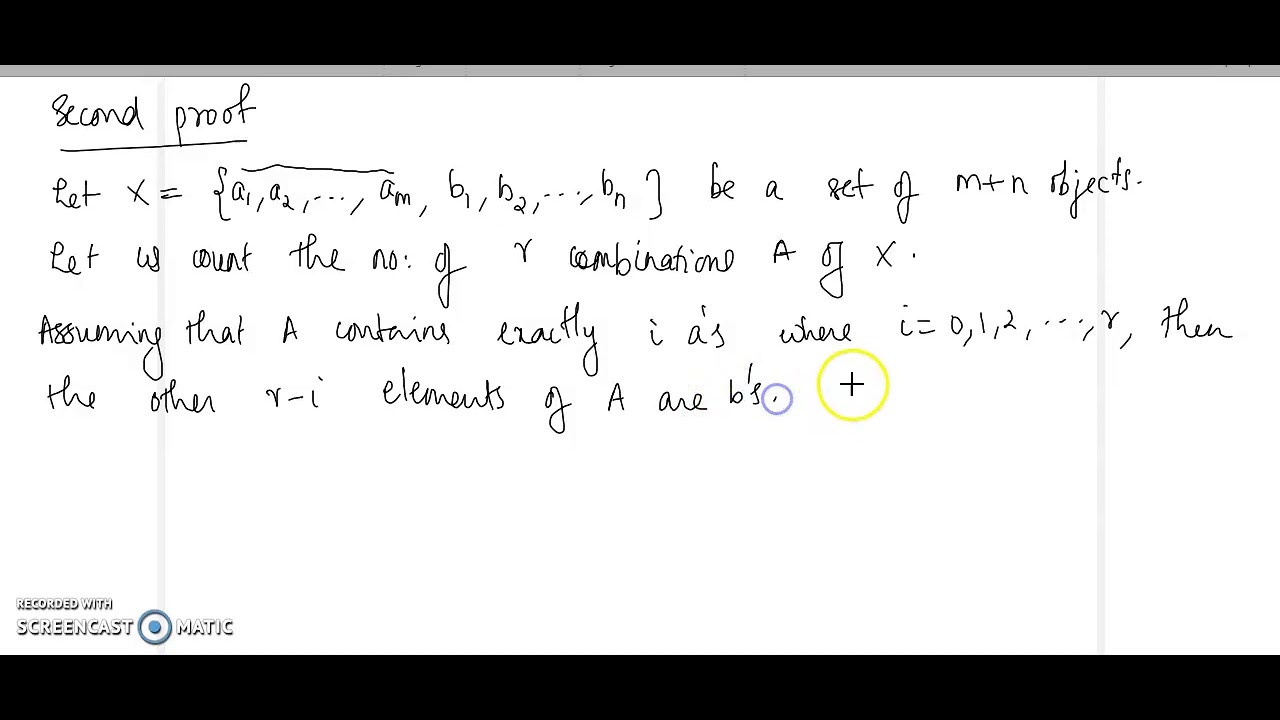 Second proof
Let X = {a1, a2, ..., am, b1, b2, ..., bn} be a set of m+n objects.
Let us count the no: of r combinations A of X.
Assuming that A contains exactly i a's where i = 0, 1, 2, ..., r, then
the other r-i elements of A are b's.
RECORDED WITH
SCREENCAST MATIC